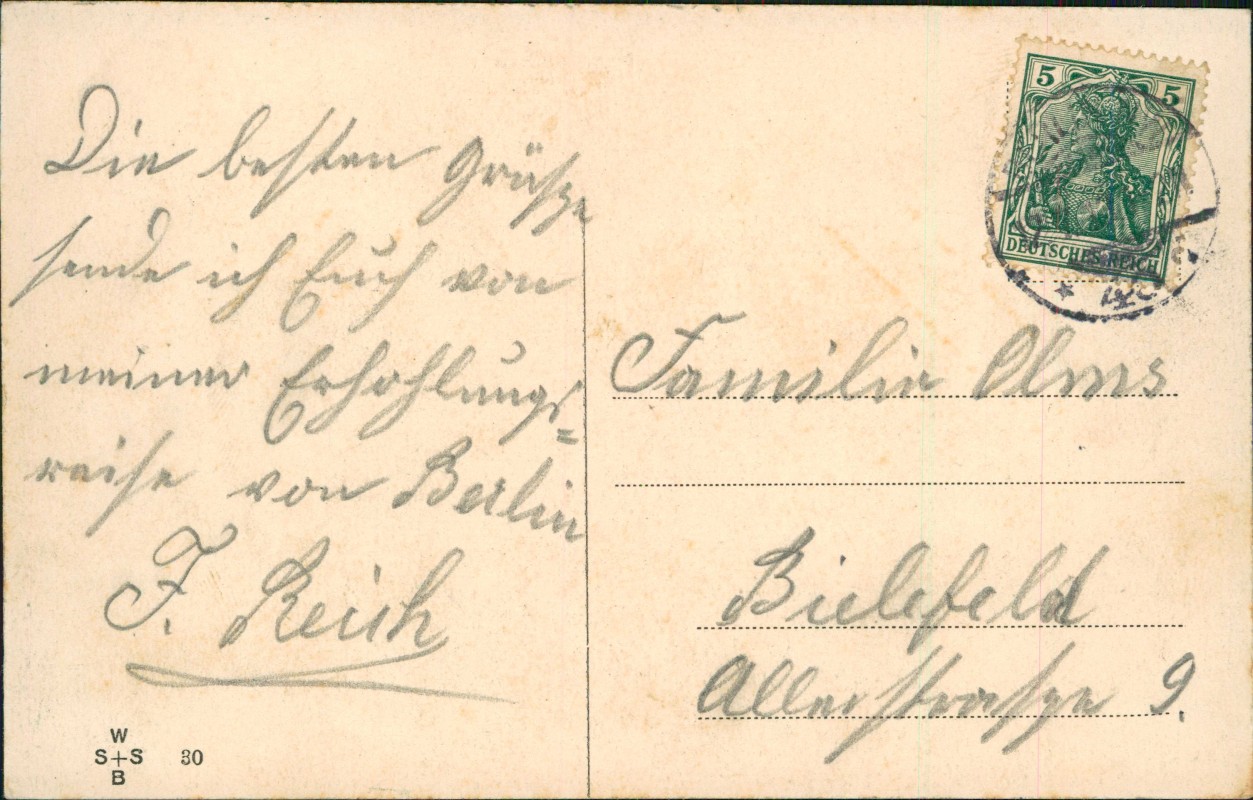 Die besten Grüße
sende ich Euch von
meiner Erhohlungs=
reise von Berlin
F. Reich
W
S+S 30
B
5 5
DEUTSCHES REICH
Familie Olms
Bielefeld
Allerstraße 9.